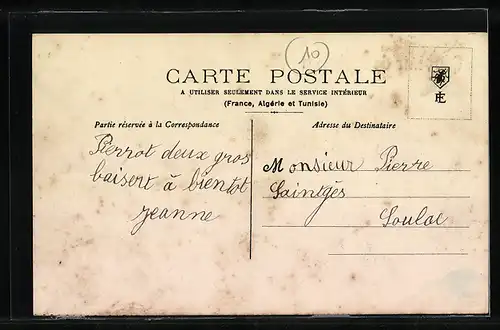 10
CARTE POSTALE
A UTILISER SEULEMENT DANS LE SERVICE INTÉRIEUR
(France, Algérie et Tunisie)
Partie réservée à la Correspondance
Adresse du Destinataire
Pierrot deux gros
baisert à bientot
jeanne
Monsieur Pierre
Saintgès
Soulac